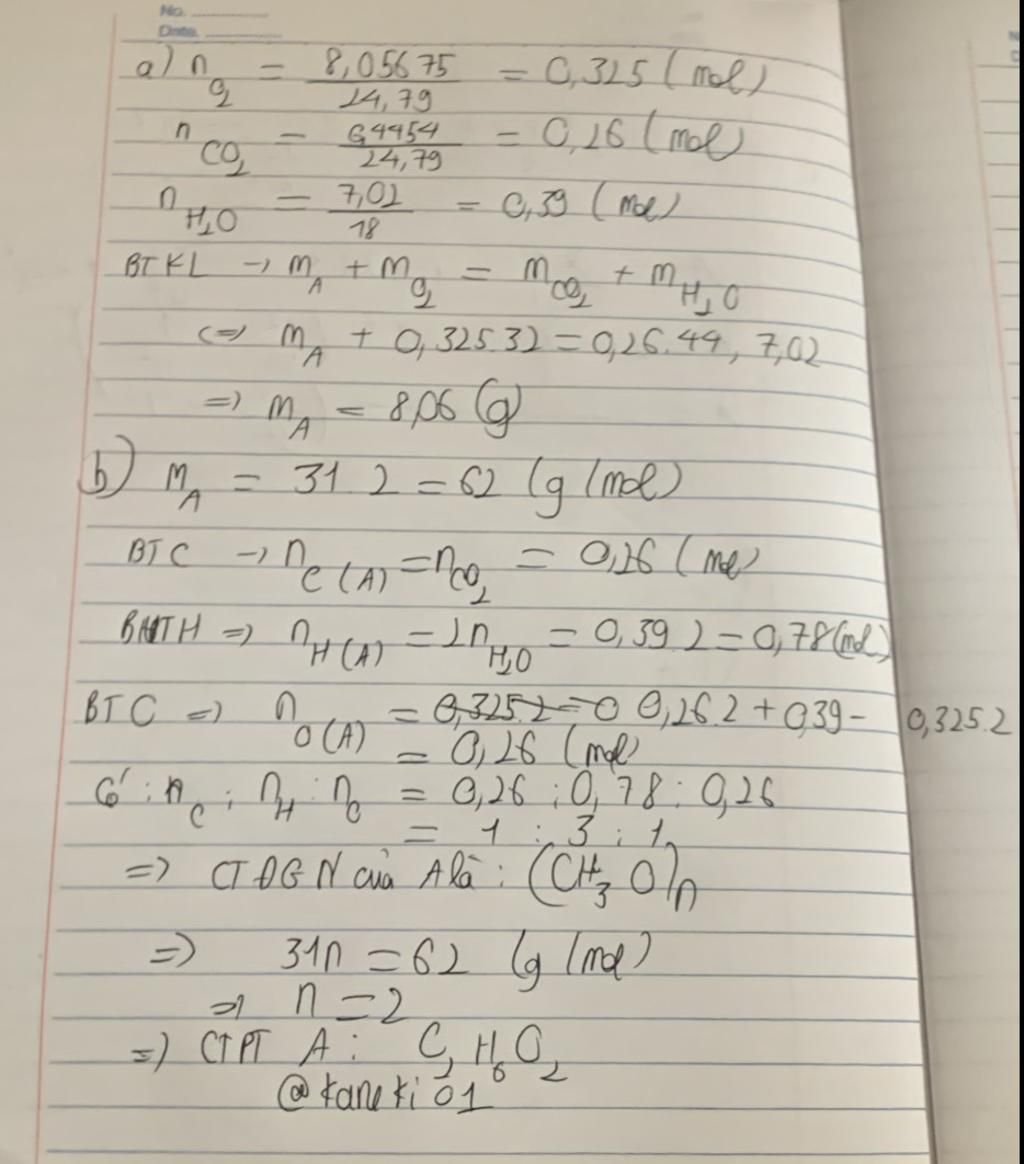 No.
Date.
a) n O2 = 8,05675 / 24,79 = 0,325 (mol)
n CO2 = 6,4454 / 24,79 = 0,26 (mol)
n H2O = 7,02 / 18 = 0,39 (mol)
BTKL → m A + m O2 = m CO2 + m H2O
<=> m A + 0,325.32 = 0,26.44, 7,02
=> m A = 8,06 (g)
b) M A = 31.2 = 62 (g/mol)
BTC → n C(A) = n CO2 = 0,26 (mol)
BNTH => n H(A) = 2n H2O = 0,39.2 = 0,78 (mol)
BTC => n O(A) = 0,325.2 = 0 0,26.2 + 0,39 - 0,325.2
= 0,26 (mol)
Có : n C : n H : n C = 0,26 : 0,78 : 0,26
= 1 : 3 : 1
=> CTĐGN của A là : (CH3O)n
=> 31n = 62 (g/mol)
=> n = 2
=> CTPT A : C2H6O2
@kaneki01